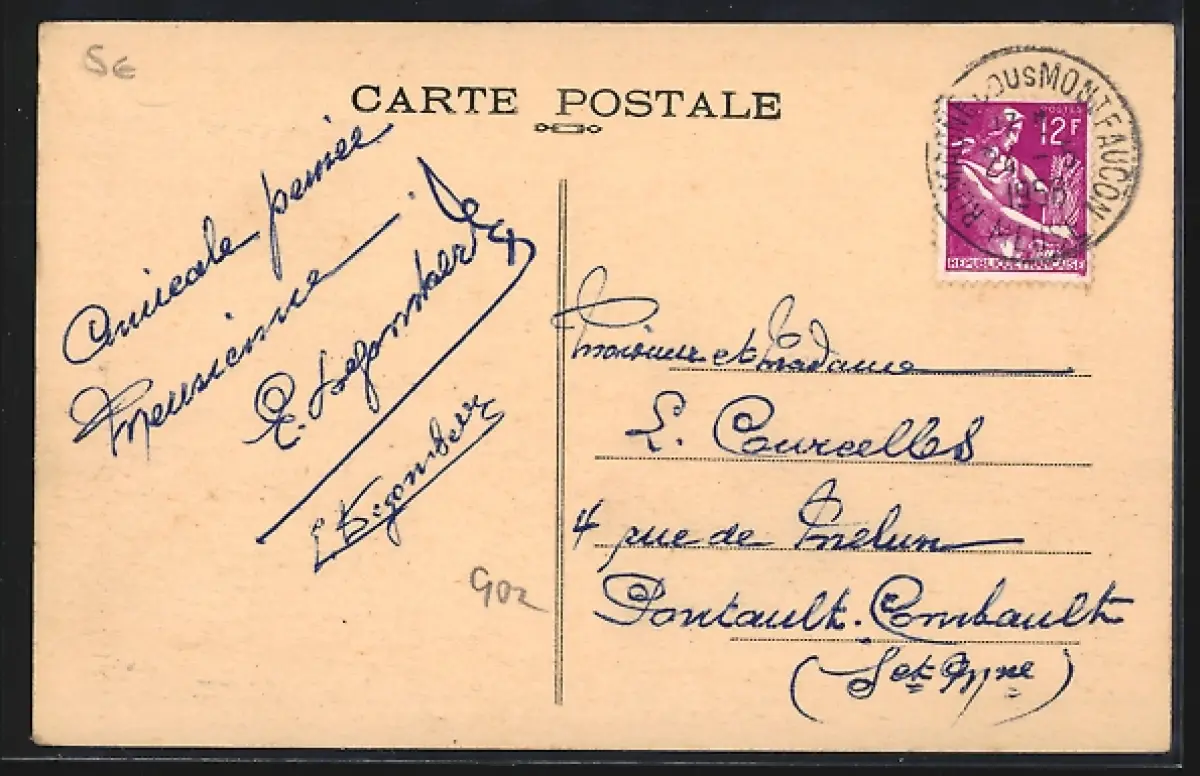 5€
CARTE POSTALE
Amicale pensée
Meusienne.
POSTES
12F
REPUBLIQUE FRANÇAISE
SOUS MONTFAUCON
1958
Monsieur et Madame
L. Courcelles
4 rue de Melun
Pontault-Combault
(S et Mne)
902